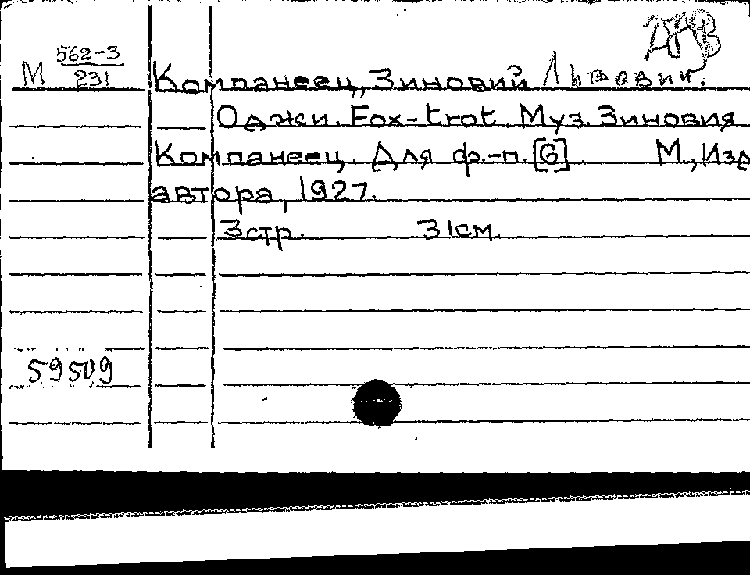 М 562-3
231
Компанеец, Зиновий Львович.
Оджи. Fox-trot. Муз. Зиновия
Компанеец. Для ф.-п. [G] М., Изд
автора, 1927.
3 стр. 31 см.
59509